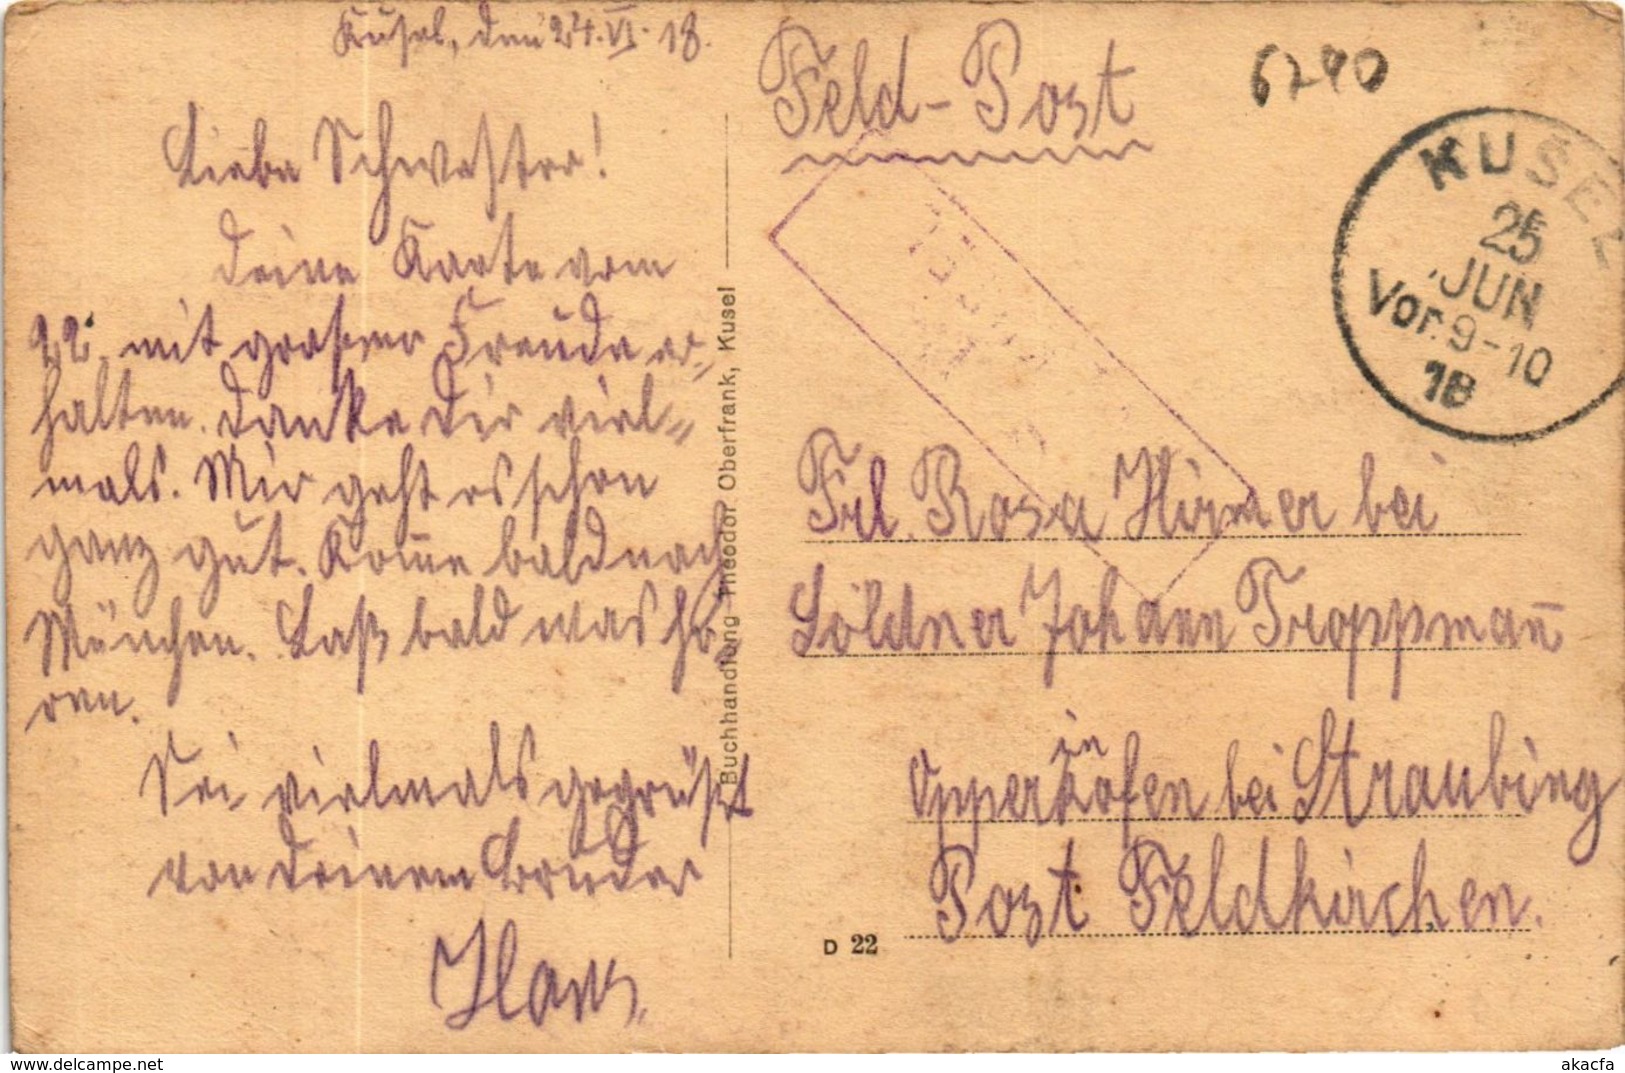 Kusel, den 24.VI.18.
Liebe Schwester!
Deine Karte vom
22. mit grosser Freude er-
halten. Danke Dir viel-
mals. Mir geht es schon
ganz gut. Kom̅e bald nach
München. Laß bald was hö-
ren.
Sei vielmals gegrüßt
von Deinem Bruder
Hans.
Buchhandlung Theodor Oberfrank, Kusel
Feld-Post
6240
KUSEL
25
JUN
Vor. 9-10
18
Frl. Rosa Hirmer bei
Söldner Johann Troppman̅
in
Opperkofen bei Straubing
Post Feldkirchen.
D 22
akpool-free: akacfa
delcampe.net